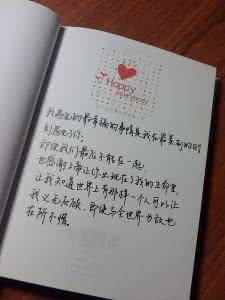 Happy
我遇见的最幸福的事情是我在最美好的时
刻遇见了你。
即使我们最后不能在一起,
也感谢上帝让你出现在了我的生命里,
让我知道世界上有那样一个人可以让
我义无反顾,即使与全世界为敌也
在所不惜。